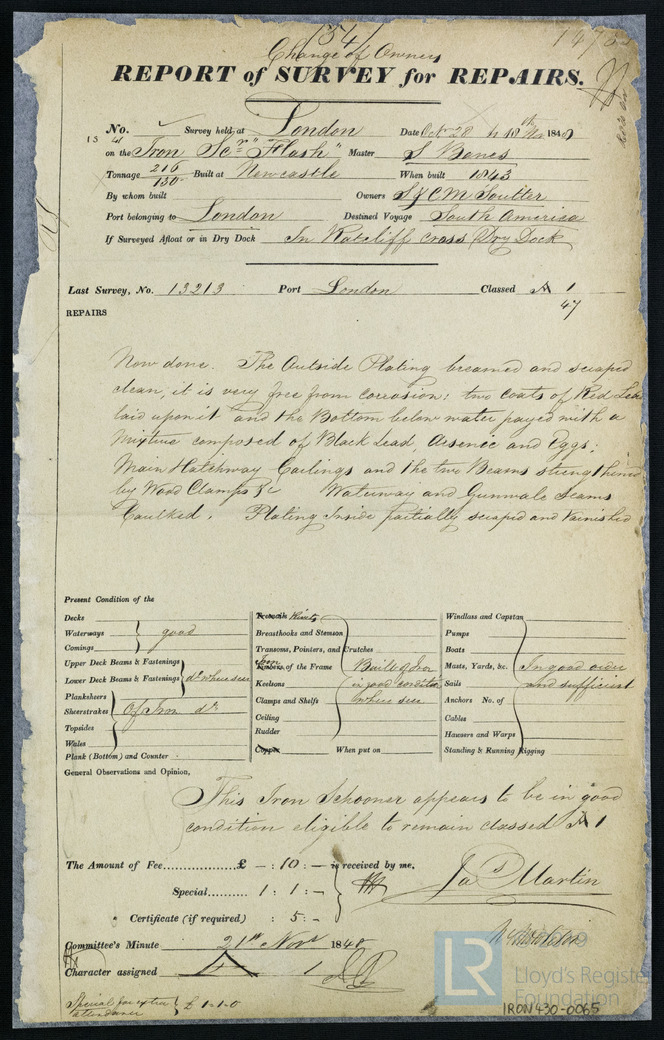 1541
Change of Owners
REPORT of SURVEY for REPAIRS.
No. Survey held at London Date Octr 28 to 18th Nov 1848
on the Iron Scr "Flash" Master S Bones
Tonnage 216/130 Built at Newcastle When built 1843
By whom built Owners S & C M Soutter
Port belonging to London Destined Voyage South America
If Surveyed Afloat or in Dry Dock In Ratcliff Cross Dry Dock
Last Survey, No. 13213 Port London Classed A 1
47
REPAIRS
Now done. The Outside Plating breamed and scraped
clean, it is very free from corrosion: two coats of Red Lead
laid upon it and the Bottom below water payed with a
Mixture composed of Black Lead, Arsenic and Eggs;
Main Hatchway Coilings and the two Beams strengthened
by Wood Clamps &c Waterway and Gunwale Seams
Caulked. Plating Inside partially scraped and Varnished
Present Condition of the
Decks
Waterways good
Comings
Upper Deck Beams & Fastenings
Lower Deck Beams & Fastenings do where seen
Planksheers
Sheerstrakes Of Iron do
Topsides
Wales
Plank (Bottom) and Counter
Treenails Rivets
Breasthooks and Stemson
Transoms, Pointers, and Crutches
Iron
Timbers of the Frame Built of Iron
Keelsons in good condition
Clamps and Shelfs where seen
Ceiling
Rudder
Copper When put on
Windlass and Capstan
Pumps
Boats
Masts, Yards, &c. In good order
Sails and sufficient
Anchors No. of
Cables
Hausers and Warps
Standing & Running Rigging
General Observations and Opinion,
This Iron Schooner appears to be in good
condition eligible to remain classed A 1
The Amount of Fee £ — : 10 : — is received by me,
Special 1 : 1 : — Jas Martin
Certificate (if required) : 5 : —
Committee's Minute 21st Novr 1848
Character assigned A 1
Special for extra attendance } £ 1-1-0
LR
Lloyd's Register
Foundation
IRON430-0065